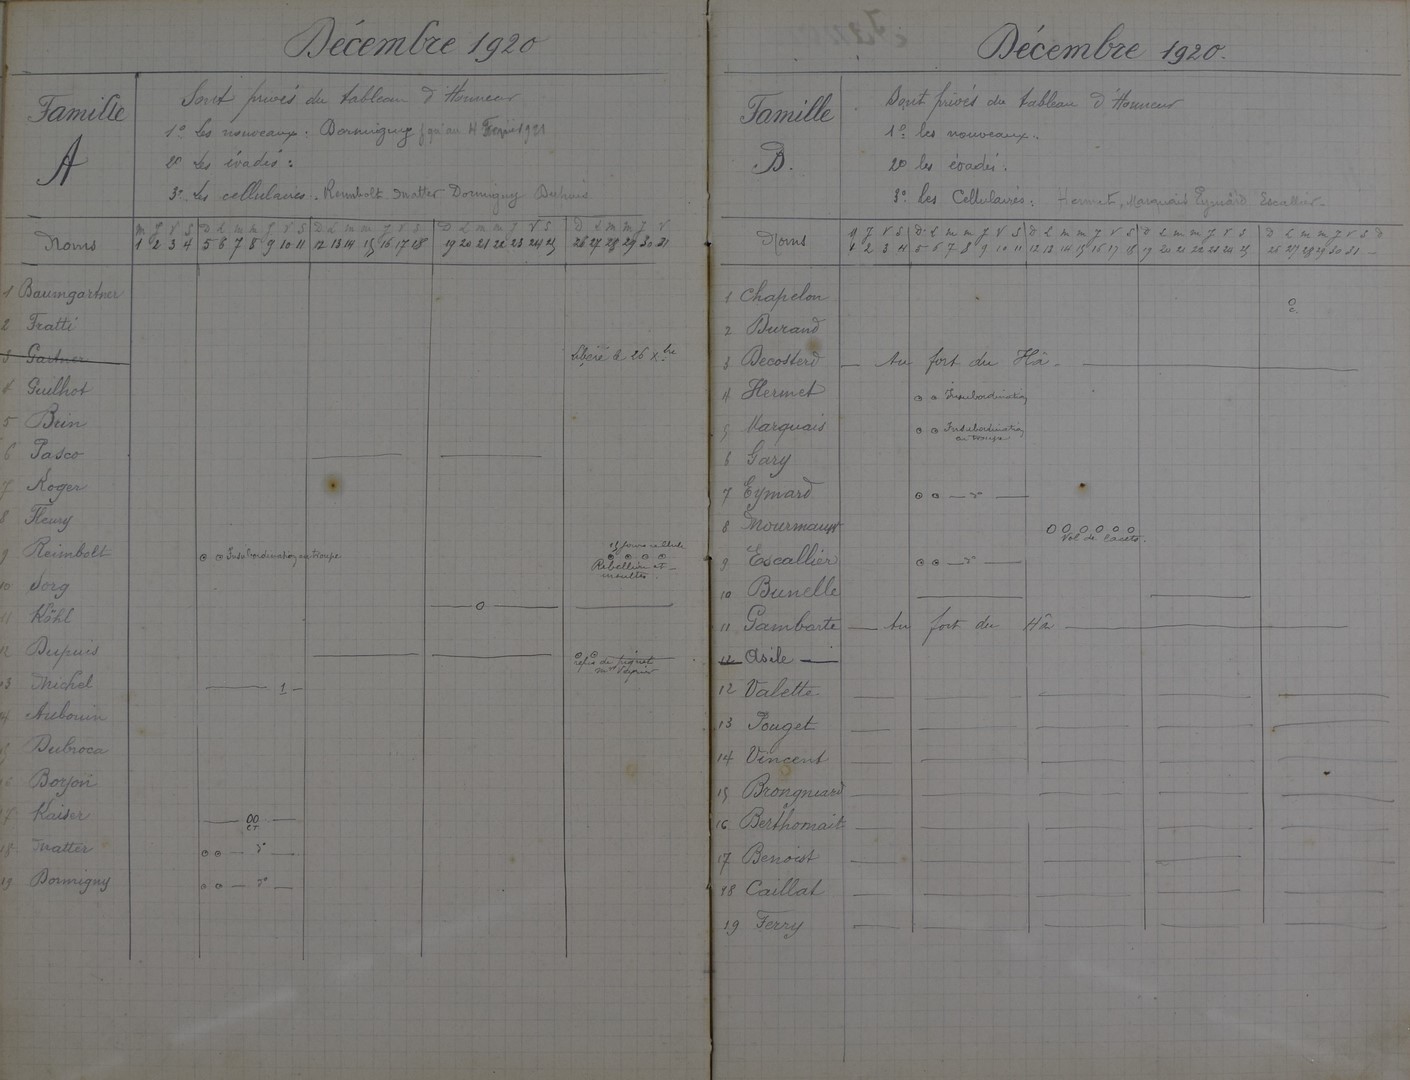 Décembre 1920
Famille
A
Sont privés du tableau d'Honneur
1° Les nouveaux: Dormigny jqu'au 4 1921
2° Les évadés:
3° Les cellulaires. Reimbolt Matter Dormigny Dupuis
Noms
m J V S D L m m J V S D L m m J V S D L m m J V S D L m m J V
1 2 3 4 5 6 7 8 9 10 11 12 13 14 15 16 17 18 19 20 21 22 23 24 25 26 27 28 29 30 31
1 Baumgartner
2 Fratti
3 Gartner libéré le 26 Xbre
4 Guilhot
5 Bein
6 Pasco
7 Roger
8 Fleury
9 Reimbolt Insubordination en troupe
Rébellion et
insultes.
10 Sorg
11 Köhl
12 Dupuis refus de piquet
13 Michel 1
14 Aubouin
15 Dubroca
16 Borjon
17 Kaiser
18 Matter d°
19 Dormigny d°
Décembre 1920.
Famille
B.
Sont privés du tableau d'Honneur
1° les nouveaux:
2° les évadés:
3° les Cellulaires: Hermet, Marquais Eymard Escallier
Noms
J V S D L m m J V S D L m m J V S D L m m J V S D L m m J V S D
1 2 3 4 5 6 7 8 9 10 11 12 13 14 15 16 17 18 19 20 21 22 23 24 25 26 27 28 29 30 31
1 Chapelon
2 Durand
3 Decosterd — Au fort du Hâ. —
4 Hermet Insubordination
5 Marquais Insubordination
en troupe
6 Gary
7 Eymard d°
8 Mourmaux
Vol de
9 Escallier d°
10 Bunelle
11 Gambarte — Au fort du Hâ —
12 Asile
12 Valette
13 Pouget
14 Vincent
15 Brongniard
16 Berthomait
17 Benoist
18 Caillat
19 Ferry